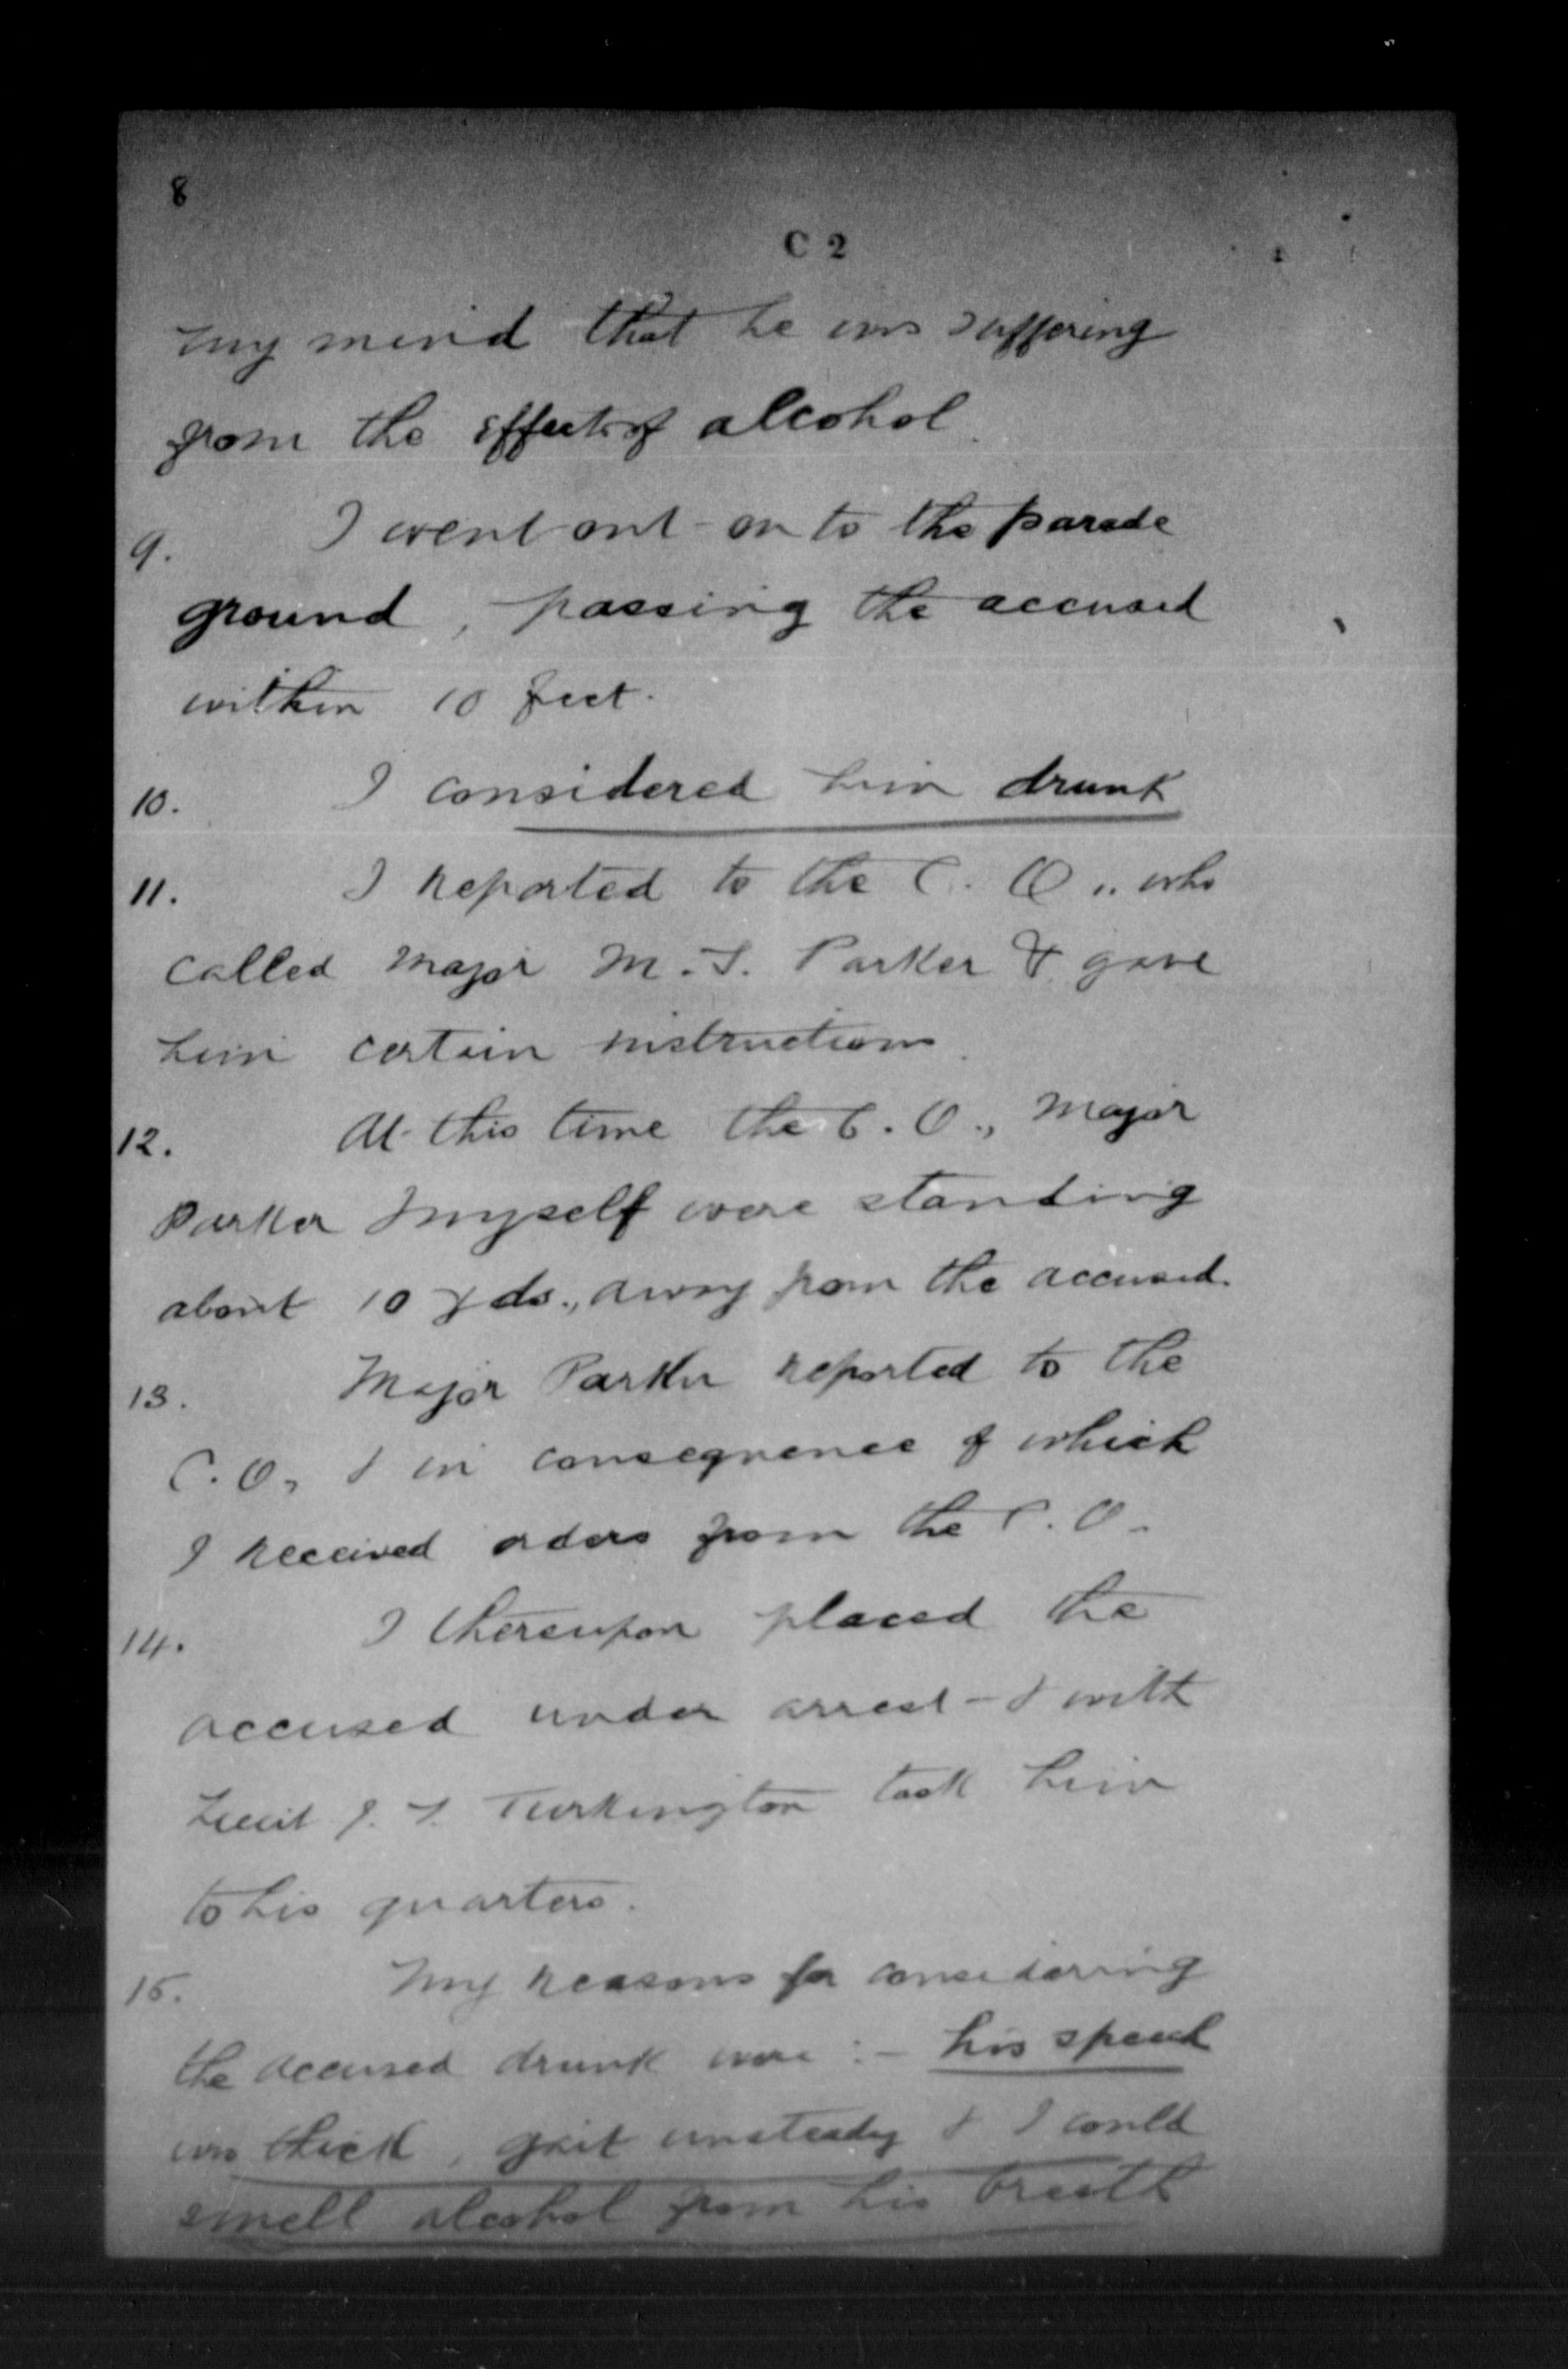 8
C 2
my mind that he was suffering
from the effects of alcohol.
9. I went out on to the parade
ground, passing the accused
within 10 feet.
10. I considered him drunk
11. I reported to the C. O., who
called Major M. S. Parker & gave
him certain instructions.
12. At this time the C. O., Major
Parker & myself were standing
about 10 yds., away from the accused.
13. Major Parker reported to the
C. O., & in consequence of which
I received orders from the C. O.
14. I thereupon placed the
accused under arrest & with
Lieut J. Turkington took him
to his quarters.
15. My reasons for considering
the accused drunk were :- his speech
was thick, gait unsteady & I could
smell alcohol from his breath